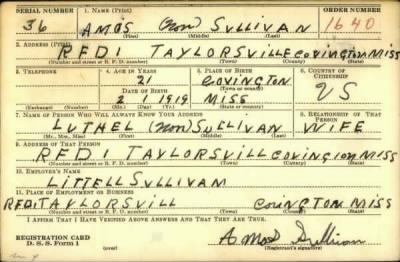 SERIAL NUMBER 1. NAME (Print) ORDER NUMBER
36 AMOS (Non) SULLIVAN 1640
(First) (Middle) (Last)
2. ADDRESS (Print)
RFD1 TAYLORSVILLE COVINGTON MISS
(Number and street or R. F. D. number) (Town) (County) (State)
3. TELEPHONE 4. AGE IN YEARS 5. PLACE OF BIRTH 6. COUNTRY OF CITIZENSHIP
21 COVINGTON
DATE OF BIRTH (Town or county) US
2 1 1919 MISS
(Exchange) (Number) (Mo.) (Day) (Yr.) (State or country)
7. NAME OF PERSON WHO WILL ALWAYS KNOW YOUR ADDRESS 8. RELATIONSHIP OF THAT PERSON
LUTHEL (Non) SULLIVAN WIFE
(Mr., Mrs., Miss) (First) (Middle) (Last)
9. ADDRESS OF THAT PERSON
RFD1 TAYLORSVILL COVINGTON MISS
(Number and street or R. F. D. number) (Town) (County) (State)
10. EMPLOYER'S NAME
LITTELL SULLIVAM
11. PLACE OF EMPLOYMENT OR BUSINESS
RFD1 TAYLORSVILL COVINGTON MISS
(Number and street or R. F. D. number) (Town) (County) (State)
I AFFIRM THAT I HAVE VERIFIED ABOVE ANSWERS AND THAT THEY ARE TRUE.
REGISTRATION CARD
D. S. S. FORM 1 Amos Sullivan
(Registrant's signature)